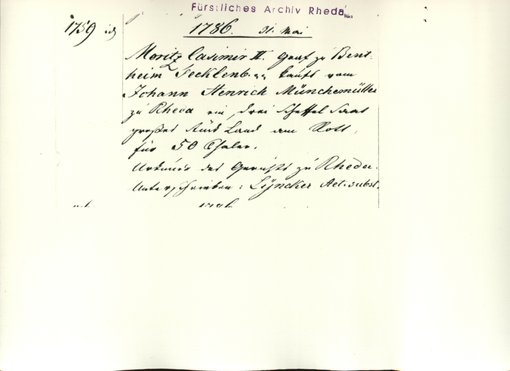 Fürstliches Archiv Rheda
1759 1786. 31. Mai
Moritz Casimir II. Graf zu Bent-
heim Tecklenb. kauft vom
Johann Henrich Münchemüller
zu Rheda ein, drei Scheffel Saat
großes Stück Land am
für 50 Thaler.
Urkunde des Gerichts zu Rheda.
Unterschrieben: Lyncker Act. subst.